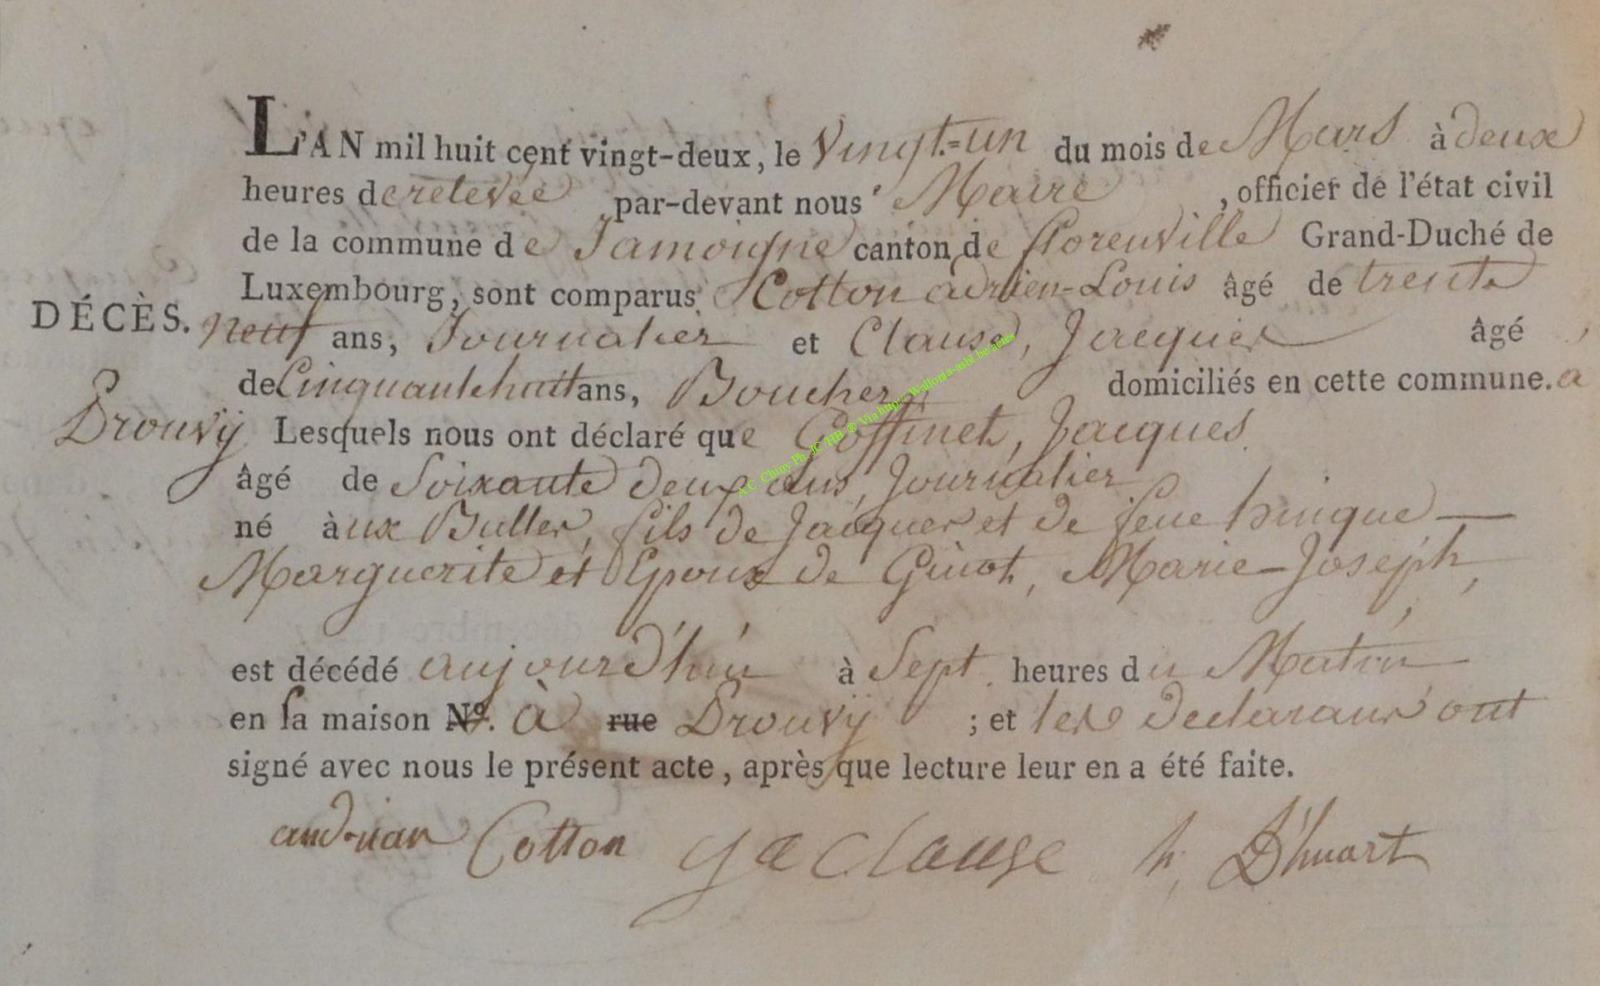 L'AN mil huit cent vingt-deux, le Vingt-un du mois de Mars à deux
heures de relevée par-devant nous Maire , officier de l'état civil
de la commune de Jamoigne canton de florenville Grand-Duché de
Luxembourg, sont comparus Cotton adrien-Louis âgé de trente
DÉCÈS. neuf ans, Journalier et Clause, Jacques âgé
de Cinquante huit ans, Boucher, domiciliés en cette commune. a
Drouvÿ Lesquels nous ont déclaré que Goffinet, Jacques
âgé de Soixante deux ans, Journalier
né à ux Bulles, fils de Jacques et de feue hinque —
Marguerite et Epoux de Ginot, Marie-Joseph,
est décédé aujourd'hui à Sept heures du Matin
en sa maison No. à rue Drouvÿ ; et les declarans ont
signé avec nous le présent acte, après que lecture leur en a été faite.
Cotton clause h. D'huart